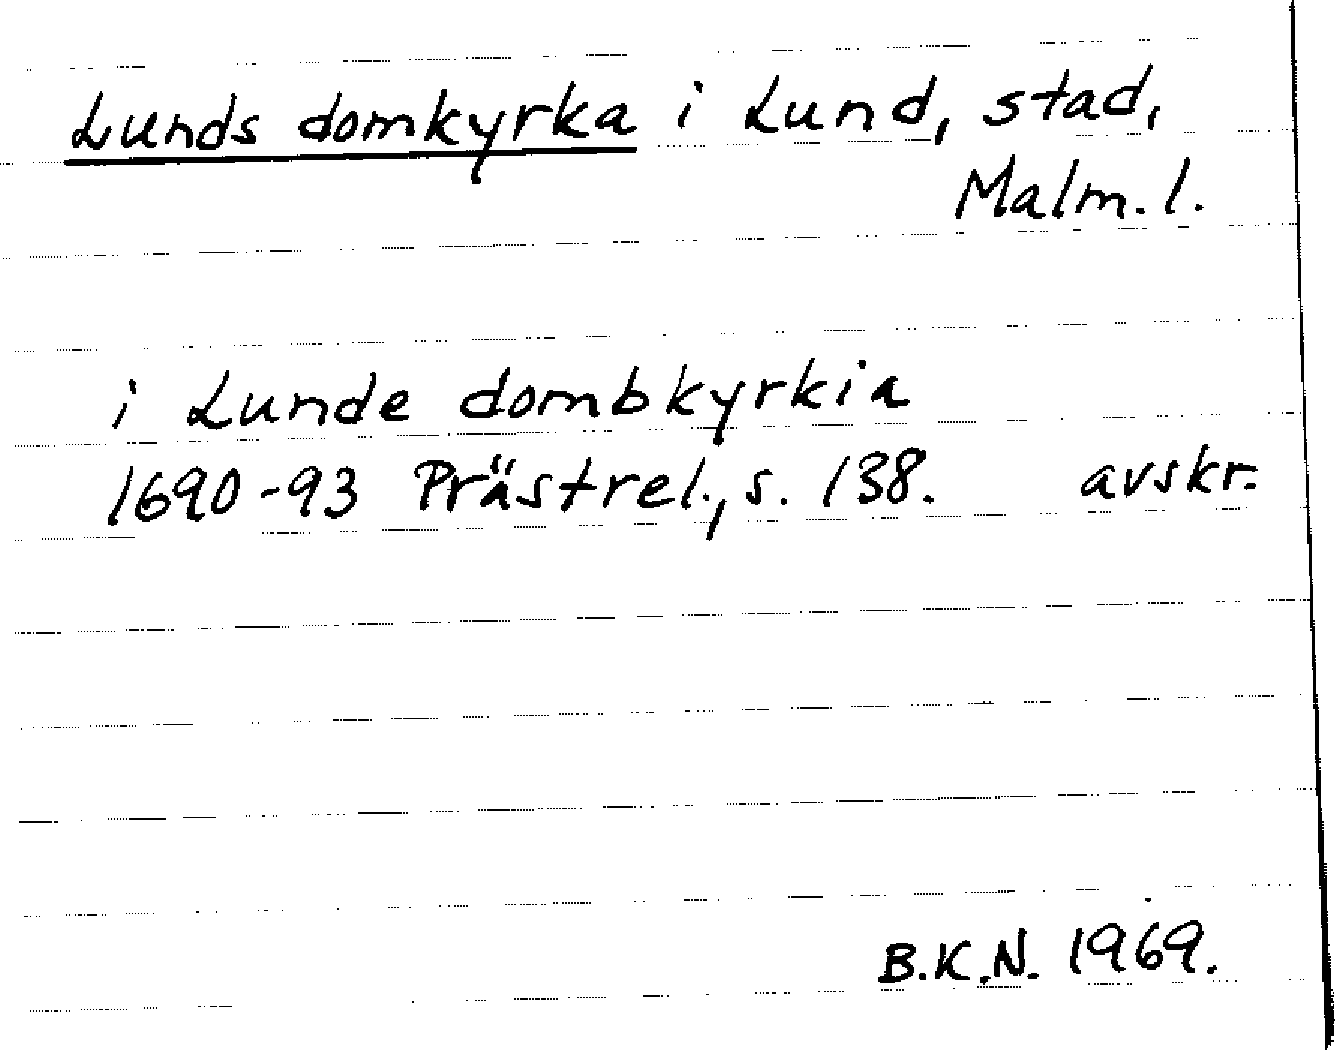 Lunds domkyrka i Lund, stad,
Malm. l.
i Lunde dombkyrkia
1690-93 Prästrel., s. 138. avskr.
B.K.N. 1969.